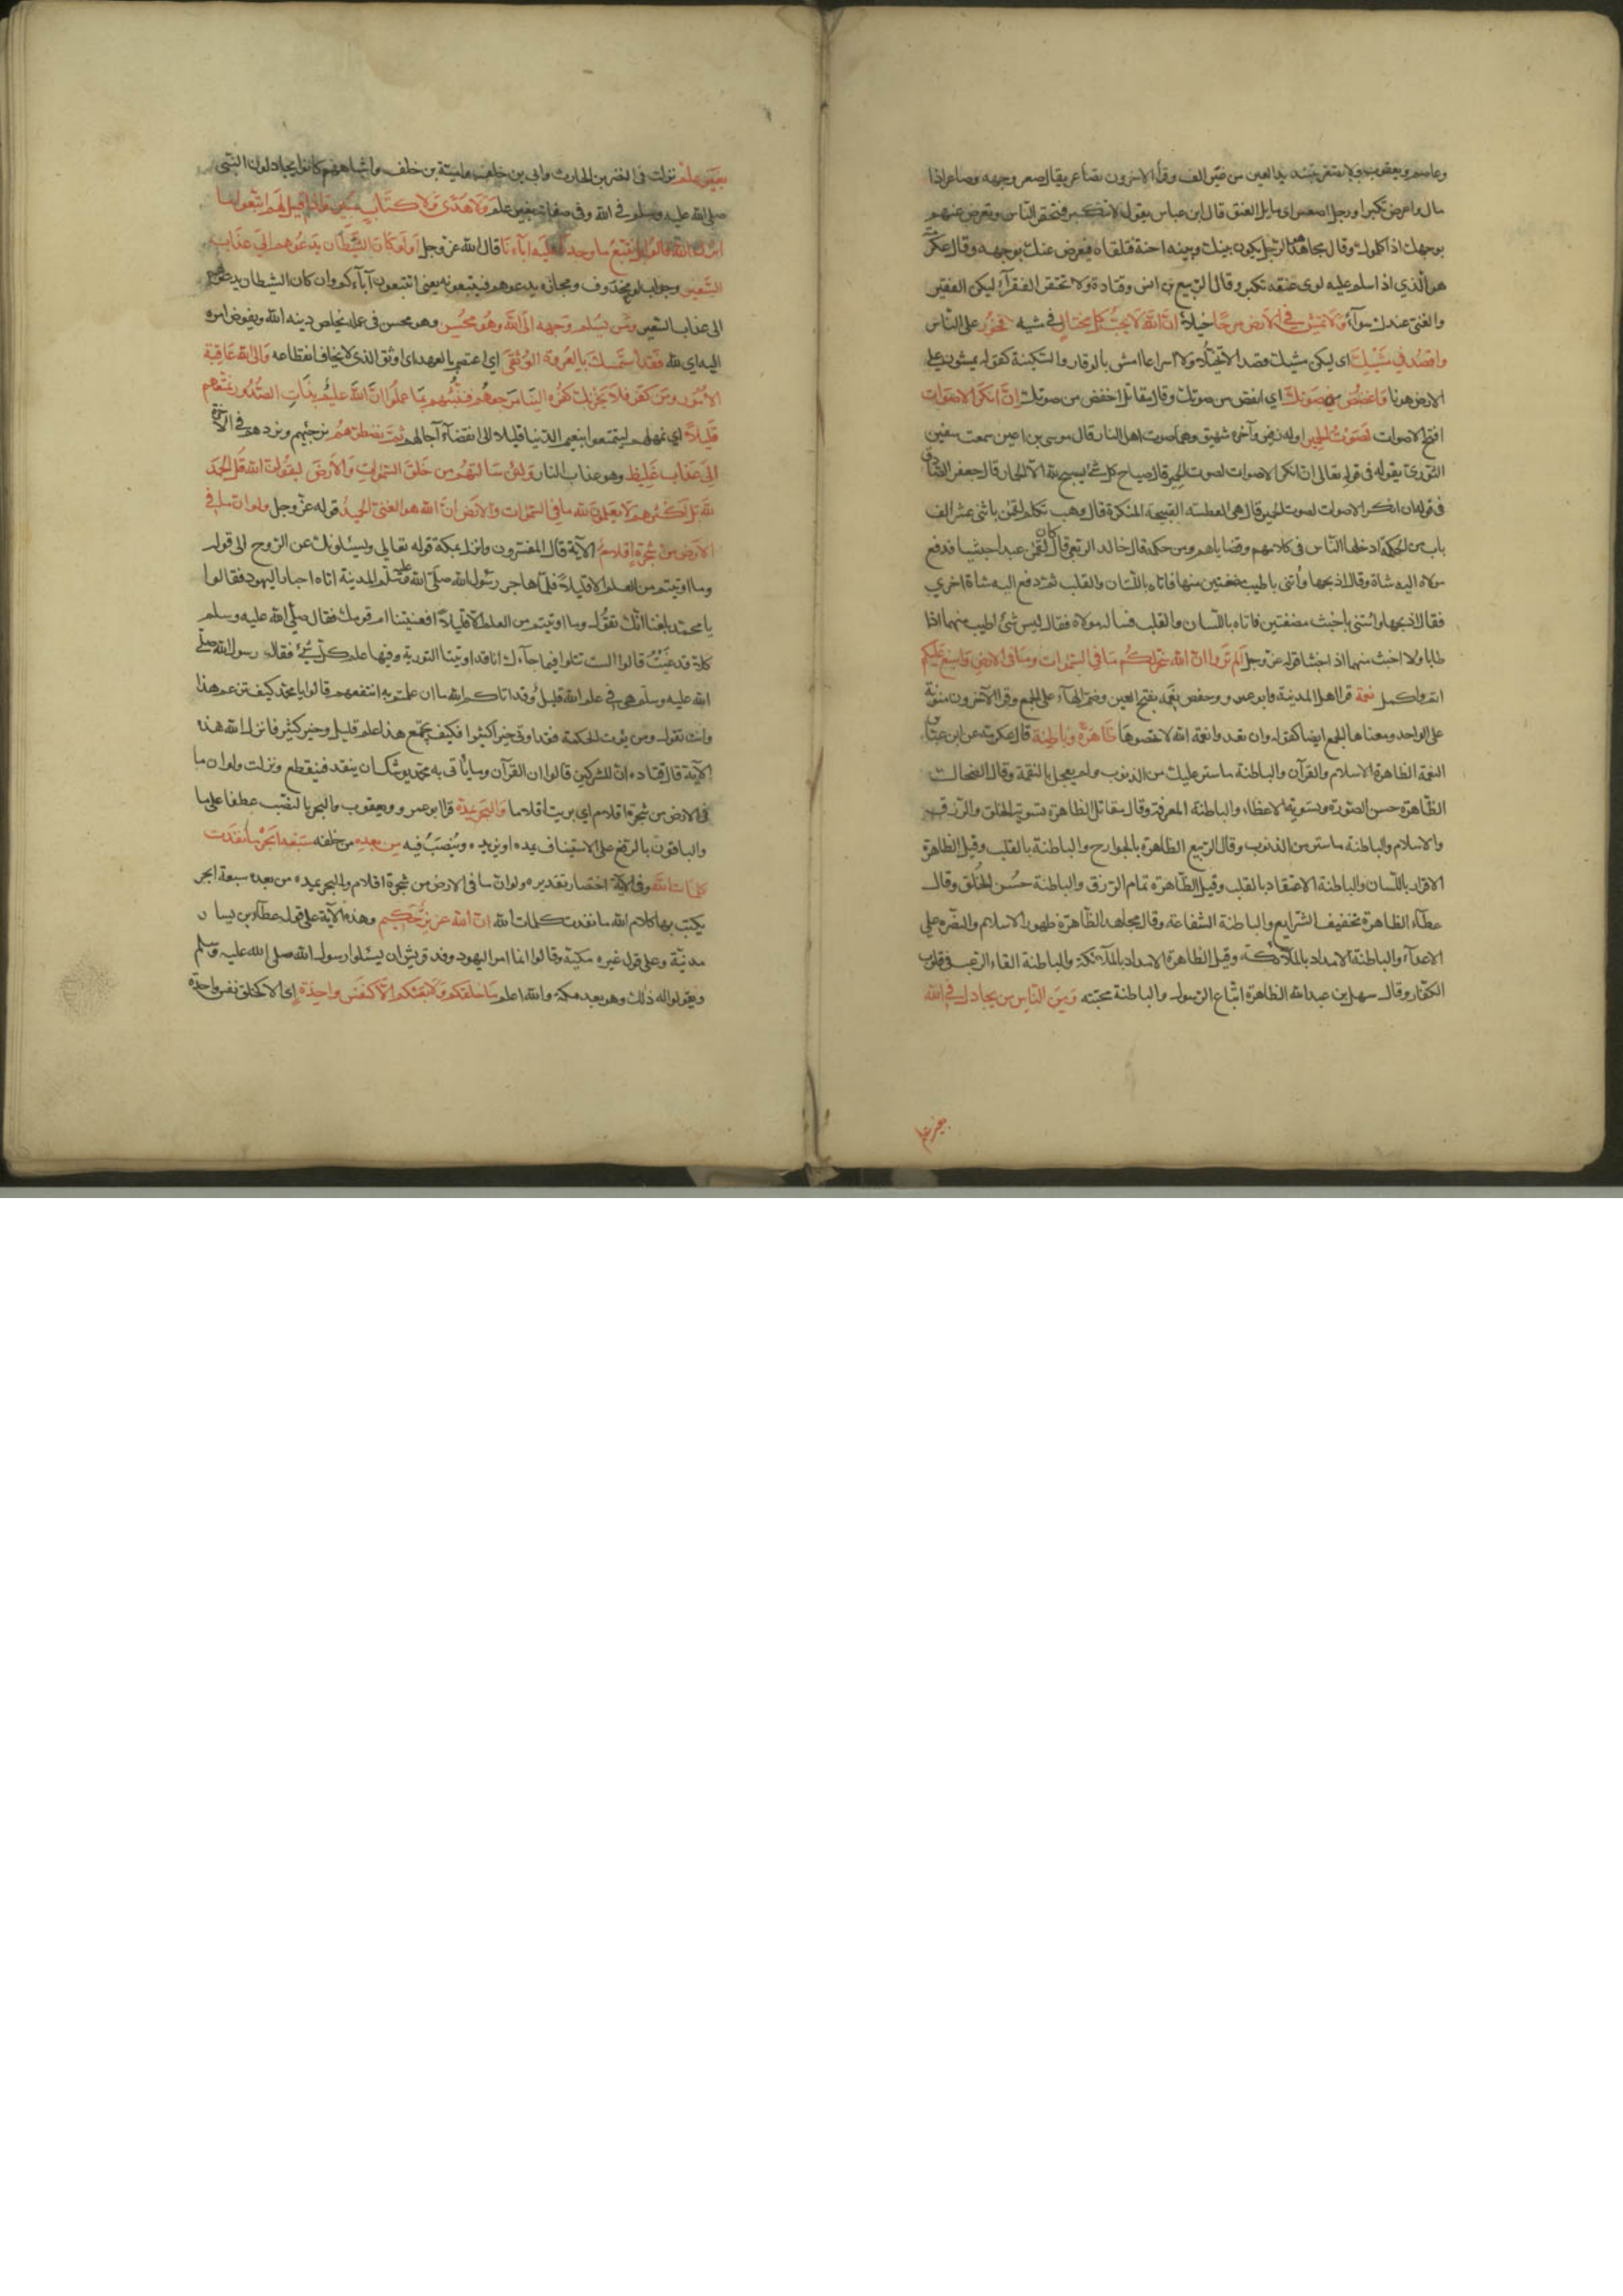 وعاصم ويعقوب ولا تصعر بتشديد العين من غير الف وقرأ الاخرون تصاعر يقال صعر وجهه وصاعر اذا
مال واعرض تكبرا ورجل اصعر اى مايل العنق قال ابن عباس يقول لا تتكبر فتحقر الناس وتعرض عنهم
بوجهك اذا كلموك وقال مجاهد هو الرجل يكون بينك وبينه احنة فتلقاه فيعرض عنك بوجهه وقال عكرمة
هو الذي اذا سلم عليه لوى عنقه تكبرا وقال الربيع بن انس وقتادة ولا تحتقر الفقرآء ليكن الفقير
والغني عندك سوآء وَلَا تَمْشِ فِي الْأَرْضِ مَرَحًا خيلاء إِنَّ اللَّهَ لَا يُحِبُّ كُلَّ مُخْتَالٍ في مشيه فَخُورٍ على الناس
وَاقْصِدْ فِي مَشْيِكَ اى ليكن مشيك قصدا لا تخيلا ولا اسراعا امش بالوقار والسكينة كقوله يمشون على
الارض هونا وَاغْضُضْ مِنْ صَوْتِكَ اي انقص من صوتك وقال مقاتل اخفض من صوتك إِنَّ أَنْكَرَ الْأَصْوَاتِ
اقبح الاصوات لَصَوْتُ الْحَمِيرِ اوله زفير وآخره شهيق وهما صوت اهل النار قال موسى بن اعين سمعت سفين
الثورى يقول في قوله تعالى ان انكر الاصوات لصوت الحمير قال صياح كل شئ يسبح لله الا الحمار قال جعفر الصادق
في قوله ان انكر الاصوات لصوت الحمير قال هي العطسة القبيحة المنكرة قال وهب تكلم لقمن باثنى عشر الف
باب من الحكمة ادخلها الناس في كلامهم وقضاياهم ومن حكمه قال خالد الربعي كان لقمن عبدا حبشيا فدفع
مولاه اليه شاة وقال اذبحها وأتنى باطيب مضغتين منها فاتاه باللسان والقلب ثم دفع اليه شاة اخري
فقال اذبحها وائتنى باخبث مضغتين فاتاه باللسان والقلب فساله مولاه فقال ليس شئ اطيب منهما اذا
طابا ولا اخبث منهما اذا خبثا قوله عز وجل أَلَمْ تَرَوْا أَنَّ اللَّهَ سَخَّرَ لَكُمْ مَا فِي السَّمَوَاتِ وَمَا فِي الْأَرْضِ وَأَسْبَغَ عَلَيْكُمْ
اتم واكمل نعمة قرا اهل المدينة وابو عمرو وحفص نعمه بفتح العين وضم الهاء على الجمع وقرا الآخرون منونة
على الواحد ومعناها الجمع ايضا كقوله وان تعدوا نعمة الله لا تحصوها ظَاهِرَةً وَبَاطِنَةً قال عكرمة عن ابن عباس
النعمة الظاهرة الاسلام والقرآن والباطنة ما ستر عليك من الذنوب ولم يعجل بالنقمة وقال الضحاك
الظاهرة حسن الصورة وتسوية الاعضاء والباطنة المعرفة وقال مقاتل الظاهرة تسوية الخلق والرزق
والاسلام والباطنة ما ستر من الذنوب وقال الربيع الظاهرة بالجوارح والباطنة بالقلب وقيل الظاهرة
الاقرار باللسان والباطنة الاعتقاد بالقلب وقيل الظاهرة تمام الرزق والباطنة حسن الخلق وقال
عطاء الظاهرة تخفيف الشرايع والباطنة الشفاعة وقال مجاهد الظاهرة ظهور الاسلام والنصره على
الاعداء والباطنة الامداد بالملائكة وقيل الظاهرة الامداد بالملآئكة والباطنة القاء الرعب في قلوب
الكفار وقال سهل بن عبد الله الظاهرة اتباع الرسول والباطنة محبته وَمِنَ النَّاسِ مَنْ يُجَادِلُ فِي اللَّهِ
بغير علم
بِغَيْرِ عِلْمٍ نزلت فى النضر بن الحارث وابى بن خلف وامية بن خلف واشباههم كانوا يجادلون النبى
صلى الله عليه وسلم فى الله وفى صفاته بغير علم وَلَا هُدًى وَلَا كِتَابٍ مُنِيرٍ وَإِذَا قِيلَ لَهُمُ اتَّبِعُوا مَا
أَنْزَلَ اللَّهُ قَالُوا بَلْ نَتَّبِعُ مَا وَجَدْنَا عَلَيْهِ آبَاءَنَا قال الله عز وجل أَوَلَوْ كَانَ الشَّيْطَانُ يَدْعُوهُمْ إِلَى عَذَابِ
السَّعِيرِ وجواب لو محذوف ومجازه يدعوهم فيتبعونه يعنى اتتبعون آبآءكم وان كان الشيطان يدعوهم
الى عذاب السعير وَمَنْ يُسْلِمْ وَجْهَهُ إِلَى اللَّهِ وَهُوَ مُحْسِنٌ وهو محسن فى عمله يخلص دينه لله ويفوض امره
اليه اى لله فَقَدِ اسْتَمْسَكَ بِالْعُرْوَةِ الْوُثْقَى اي اعتصم بالعهد الاوثق الذي لا يخاف انقطاعه وَإِلَى اللَّهِ عَاقِبَةُ
الْأُمُورِ وَمَنْ كَفَرَ فَلَا يَحْزُنْكَ كُفْرُهُ إِلَيْنَا مَرْجِعُهُمْ فَنُنَبِّئُهُمْ بِمَا عَمِلُوا إِنَّ اللَّهَ عَلِيمٌ بِذَاتِ الصُّدُورِ نُمَتِّعُهُمْ
قَلِيلًا اي نمهلهم ليتمتعوا بنعيم الدنيا قليلا الى انقضاء آجالهم ثُمَّ نَضْطَرُّهُمْ نزجئهم ونردهم فى الآخرة
إِلَى عَذَابٍ غَلِيظٍ وهو عذاب النار وَلَئِنْ سَأَلْتَهُمْ مَنْ خَلَقَ السَّمَوَاتِ وَالْأَرْضَ لَيَقُولُنَّ اللَّهُ قُلِ الْحَمْدُ
لِلَّهِ بَلْ أَكْثَرُهُمْ لَا يَعْلَمُونَ لِلَّهِ مَا فِي السَّمَوَاتِ وَالْأَرْضِ إِنَّ اللَّهَ هُوَ الْغَنِيُّ الْحَمِيدُ قوله عز وجل ولو ان ما فى
الْأَرْضِ مِنْ شَجَرَةٍ أَقْلَامٌ الآية قال المفسرون وانزل بمكة قوله تعالى ويسئلونك عن الروح الى قوله
وما اوتيتم من العلم الا قليلا فلما هاجر رسول الله صلى الله عليه وسلم الى المدينة اتاه احبار اليهود فقالوا
يا محمد بلغنا انك تقول وما اوتيتم من العلم الا قليلا افعنيتنا ام قومك فقال صلى الله عليه وسلم
كلا قد عنيت قالوا الست تتلوا فيما جآءك انا قد اوتينا التورية وفيها علم كل شئ فقال رسول الله صلى
الله عليه وسلم هى في علم الله قليل وقد اتاكم الله ما ان عملتم به انتفعتم قالوا يا محمد كيف تزعم هذا
وانت تقول ومن يؤت الحكمة فقد اوتى خيرا كثيرا فكيف يجتمع هذا علم قليل وخير كثير فانزل الله هذه
الآية قال قتاده ان المشركين قالوا ان القرآن وما يأتى به محمد يوشك ان ينفد فينقطع ونزلت ولو ان ما
فى الارض من شجرة اقلام اي بريت اقلاما وَالْبَحْرُ يَمُدُّهُ قرا ابو عمرو ويعقوب والبحر بالنصب عطفا على ما
والباقون بالرفع على الاستيناف يمده اى يزيده وينصب فيه مِنْ بَعْدِهِ من خلفه سَبْعَةُ أَبْحُرٍ مَا نَفِدَتْ
كَلِمَاتُ اللَّهِ وفى الآية اختصار تقديره ولو ان ما فى الارض من شجرة اقلام والبحر يمده من بعده سبعة ابحر
يكتب بها كلام الله ما نفدت كلمات الله إِنَّ اللَّهَ عَزِيزٌ حَكِيمٌ وهذه الآية على قول عطاء بن يسار
مدنية وعلى قول غيره مكية وقالوا انما امر اليهود وفد قريش ان يسئلوا رسول الله صلى الله عليه وسلم
ويقولوا له ذلك وهو بعد بمكة والله اعلم مَا خَلْقُكُمْ وَلَا بَعْثُكُمْ إِلَّا كَنَفْسٍ وَاحِدَةٍ إى الا كخلق نفس واحدة